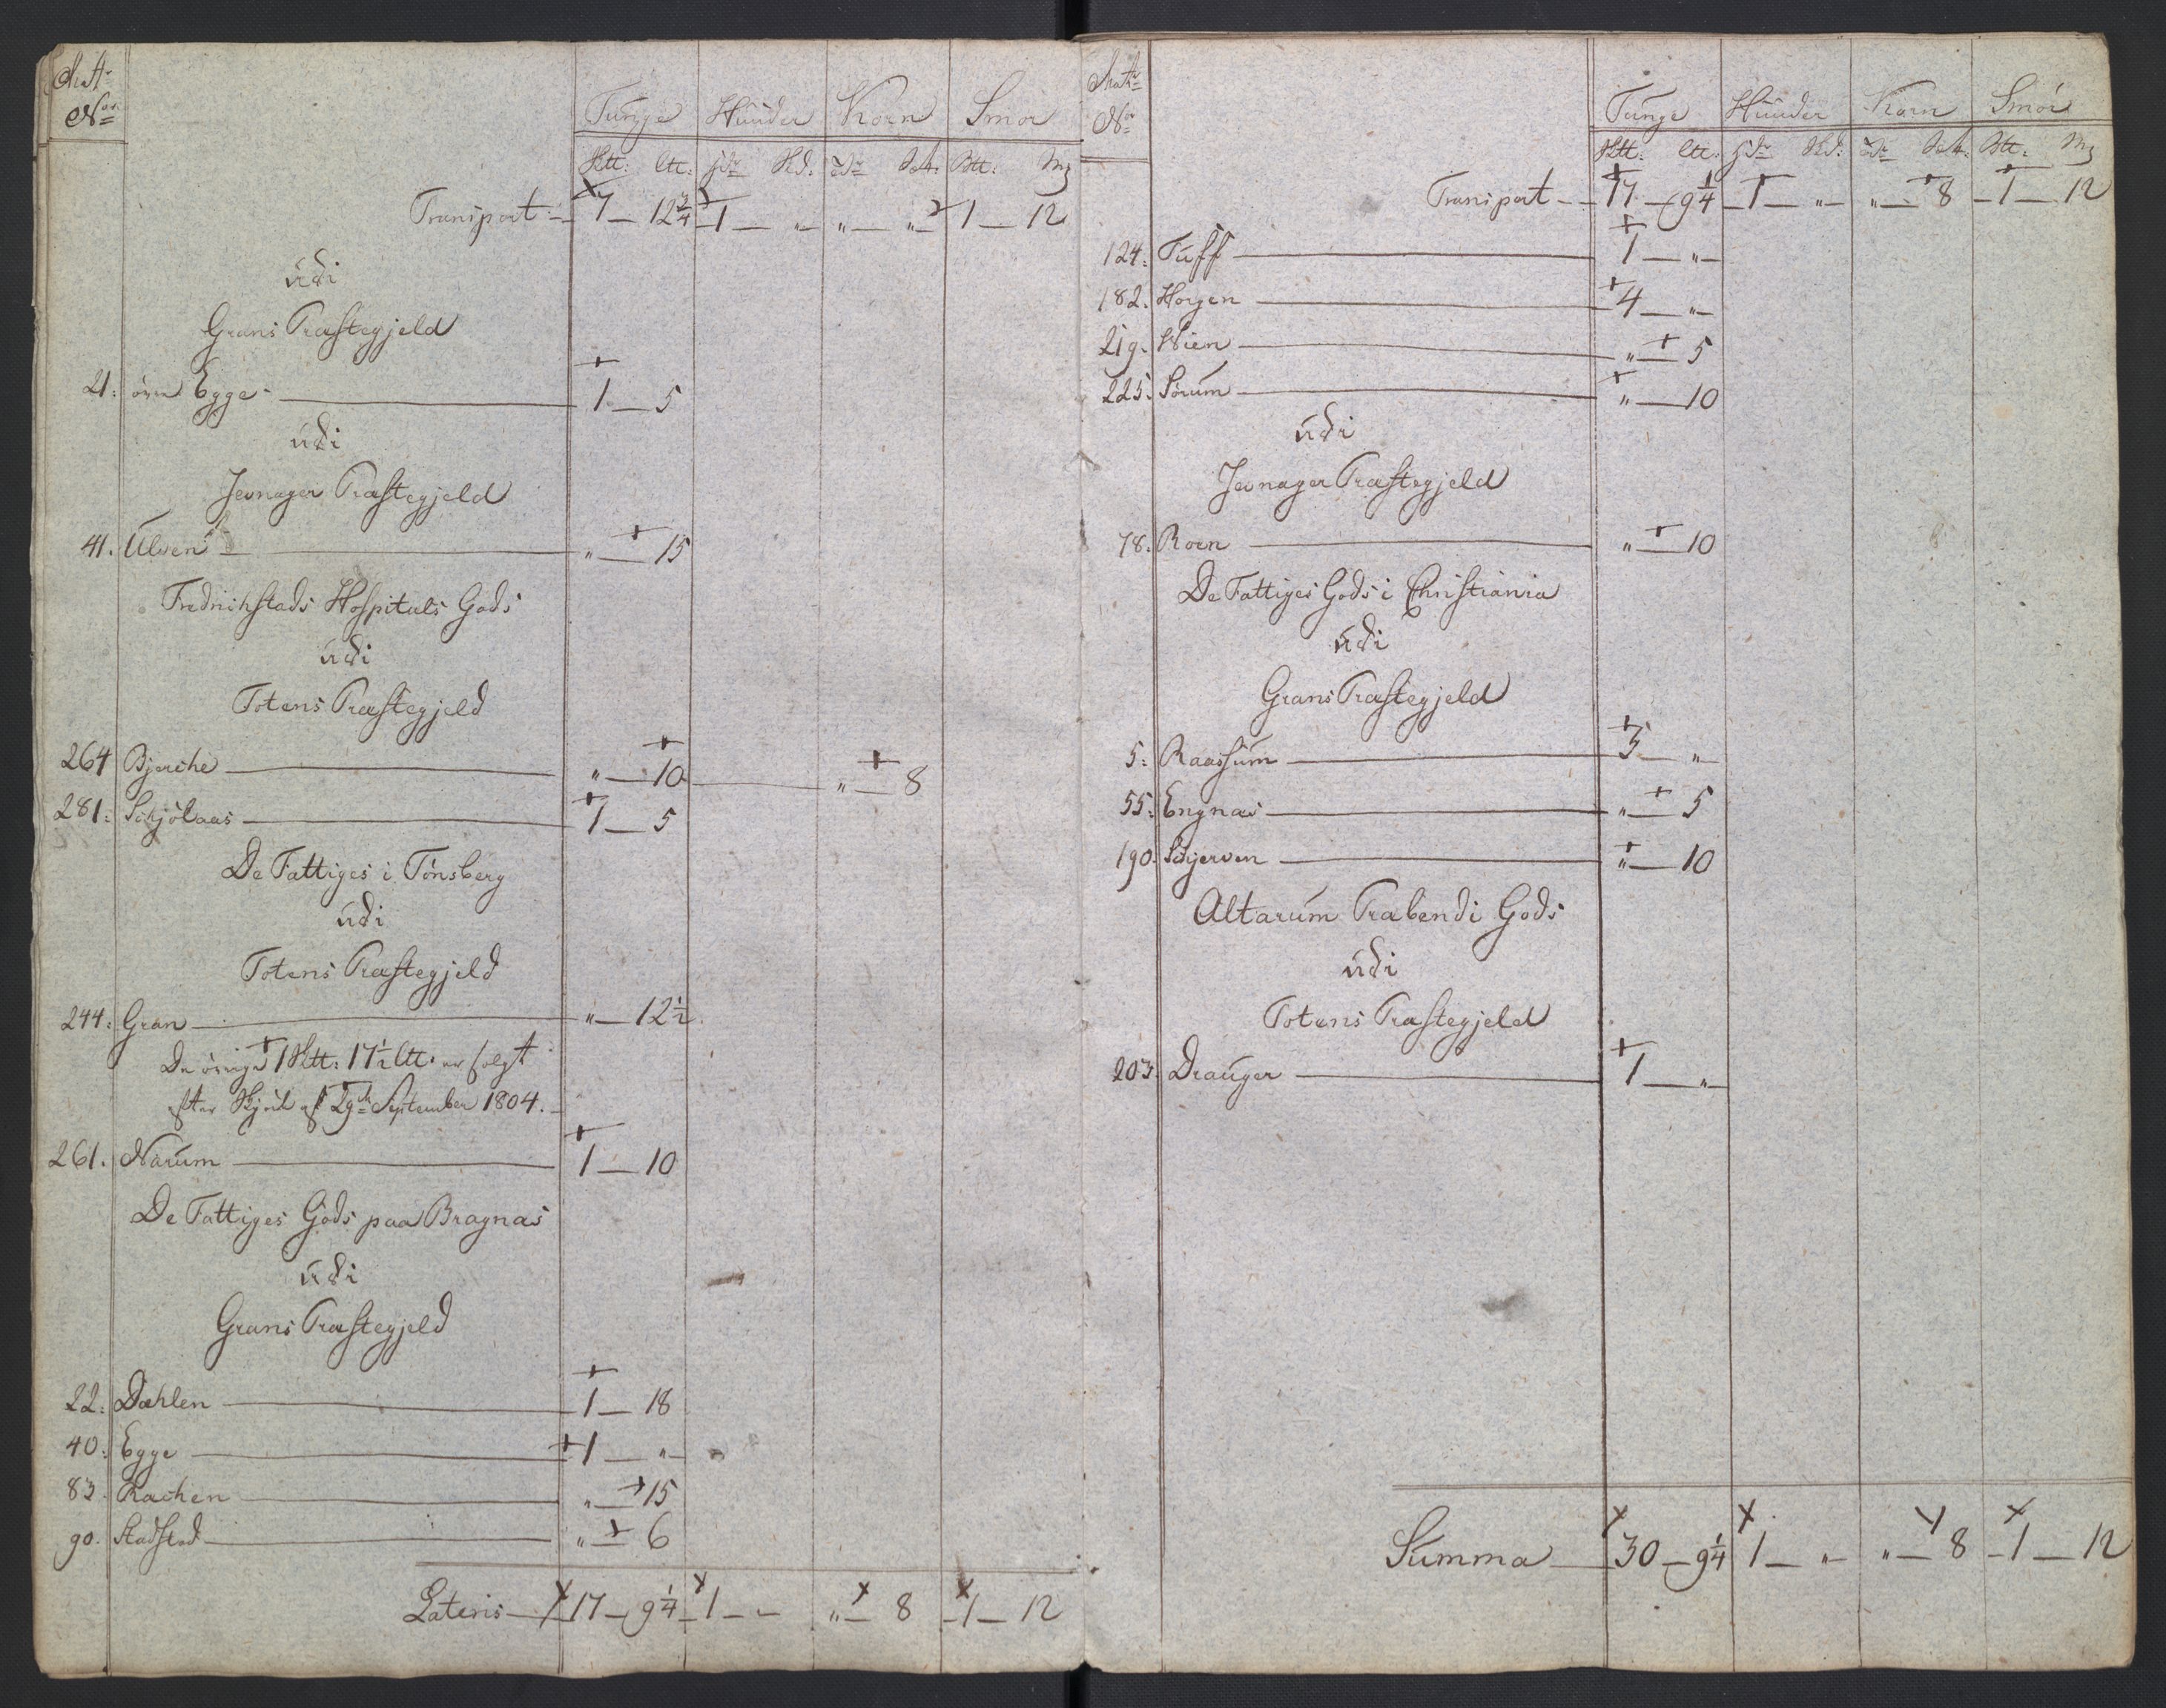 Mat:
No
Tunge Huuder Korn Smör
Sktt: ltt: Hd: Sk: Btt: Mg
Transport 7 — 12 3/4 1 — " " — " 1 — 12
udi
Grans Præstegjeld
21: övre Egge 1 — 5
udi
Jevnager Præstegjeld
41. Ulven " — 15
Fredrichstads Hospitals Gods
udi
Totens Præstegjeld
264 Bjerche " — 10 " — 8
281: Schjölaas 1 — 5
De Fattiges i Tönsberg
udi
Totens Præstegjeld
244: Gran " — 12 1/2
De övrige 1 Sktt: 17 1/2 ltt: er solgt
efter Skjöd af 29de September 1804.
261. Narum 1 — 10
De Fattiges Gods paa Bragnæs
udi
Grans Præstegjeld
22: Dæhlen 1 — 18
40: Egge 1 — "
83. Rachen " — 15
90. Stadstad " — 6
Lateris 17 — 9 1/4 1 — " " — 8 1 — 12
Mat:
No
Tunge Huuder Korn Smör
Sktt: ltt: Hd: Sk: Btt: Mg
Transport 17 — 9 1/4 1 — " " — 8 1 — 12
124: Tuff 1 — "
182. Horgen 4 — "
219. Wien " — 5
225: Sörum " — 10
udi
Jevnager Præstegjeld
78. Roen " — 10
De Fattiges Gods i Christiania
udi
Grans Præstegjeld
5: Raassum 5 — "
55: Engnæs " — 5
190: Schjerven " — 10
Altarum Præbendi Gods
udi
Totens Præstegjeld
203. Drauger 1 — "
Summa 30 — 9 1/4 1 — " " — 8 1 — 12